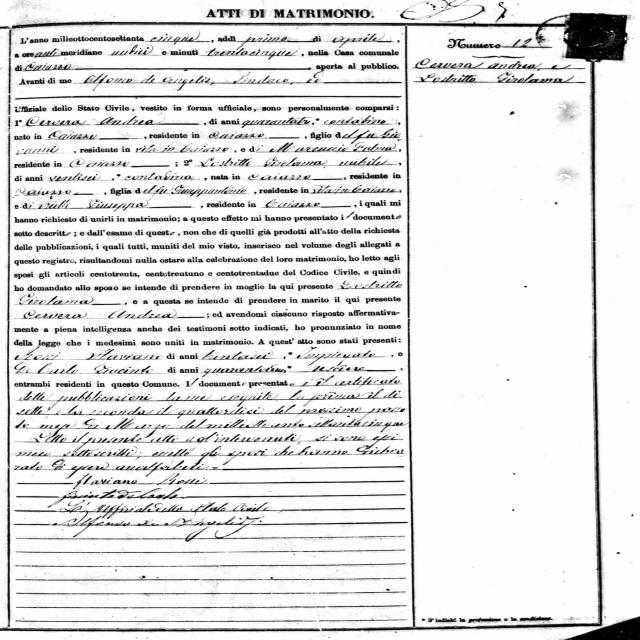 ATTI DI MATRIMONIO.
Numero 12
Cervera Andrea, e
Lostritto Girolama
L'anno milleottocentosettanta cinque, addì primo di Aprile,
a ore anti meridiane undici e minuti trentacinque, nella Casa comunale
di Caiazzo aperta al pubblico.
Avanti di me Alfonso de Angelis, Sindaco, ed
Uffiziale dello Stato Civile, vestito in forma ufficiale, sono personalmente comparsi:
1° Cervera Andrea, di anni quarantotto, contadino,
nato in Caiazzo, residente in Caiazzo, figlio del fu Gio
vanni, residente in vita in Caiazzo, e di Marcuccio Palma
residente in Caiazzo; 2° Lostritto Girolama nubile
di anni ventisei, contadina, nata in Caiazzo, residente in
Caiazzo, figlia del fu Giuseppantonio, residente in vita in Caiazzo,
e di Giuseppa, residente in Caiazzo, i quali mi
hanno richiesto di unirli in matrimonio; a questo effetto mi hanno presentato i documenti
sotto descritti; e dall'esame di questi, non che di quelli già prodotti all'atto della richiesta
delle pubblicazioni, i quali tutti, muniti del mio visto, inserisco nel volume degli allegati a
questo registro, risultandomi nulla ostare alla celebrazione del loro matrimonio, ho letto agli
sposi gli articoli centotrenta, centotrentuno e centotrentadue del Codice Civile, e quindi
ho domandato allo sposo se intende di prendere in moglie la qui presente Lostritto
Girolama, e a questa se intende di prendere in marito il qui presente
Cervera Andrea; ed avendomi ciascuno risposto affermativa-
mente a piena intelligenza anche dei testimoni sotto indicati, ho pronunziato in nome
della legge che i medesimi sono uniti in matrimonio. A quest'atto sono stati presenti:
Rossi Flaviano di anni trentasei, Impiegato, e
De Carlo Giacinto di anni, usciere,
entrambi residenti in questo Comune. I documenti presentati è il certificato
delle pubblicazioni da me eseguite la prima il dì
sette e la seconda il quattordici del prossimo passa
to mese di Marzo del milleottocentosettantacinque
Letto il presente atto agl'intervenuti, si sono essi
meco sottoscritti, eccetto gli sposi che hanno dichia
rato di essere analfabeti.
Flaviano Rossi
Giacinto de Carlo
L'Uffiziale dello Stato Civile
Alfonso de Angelis
* S'indichi la professione o la condizione.